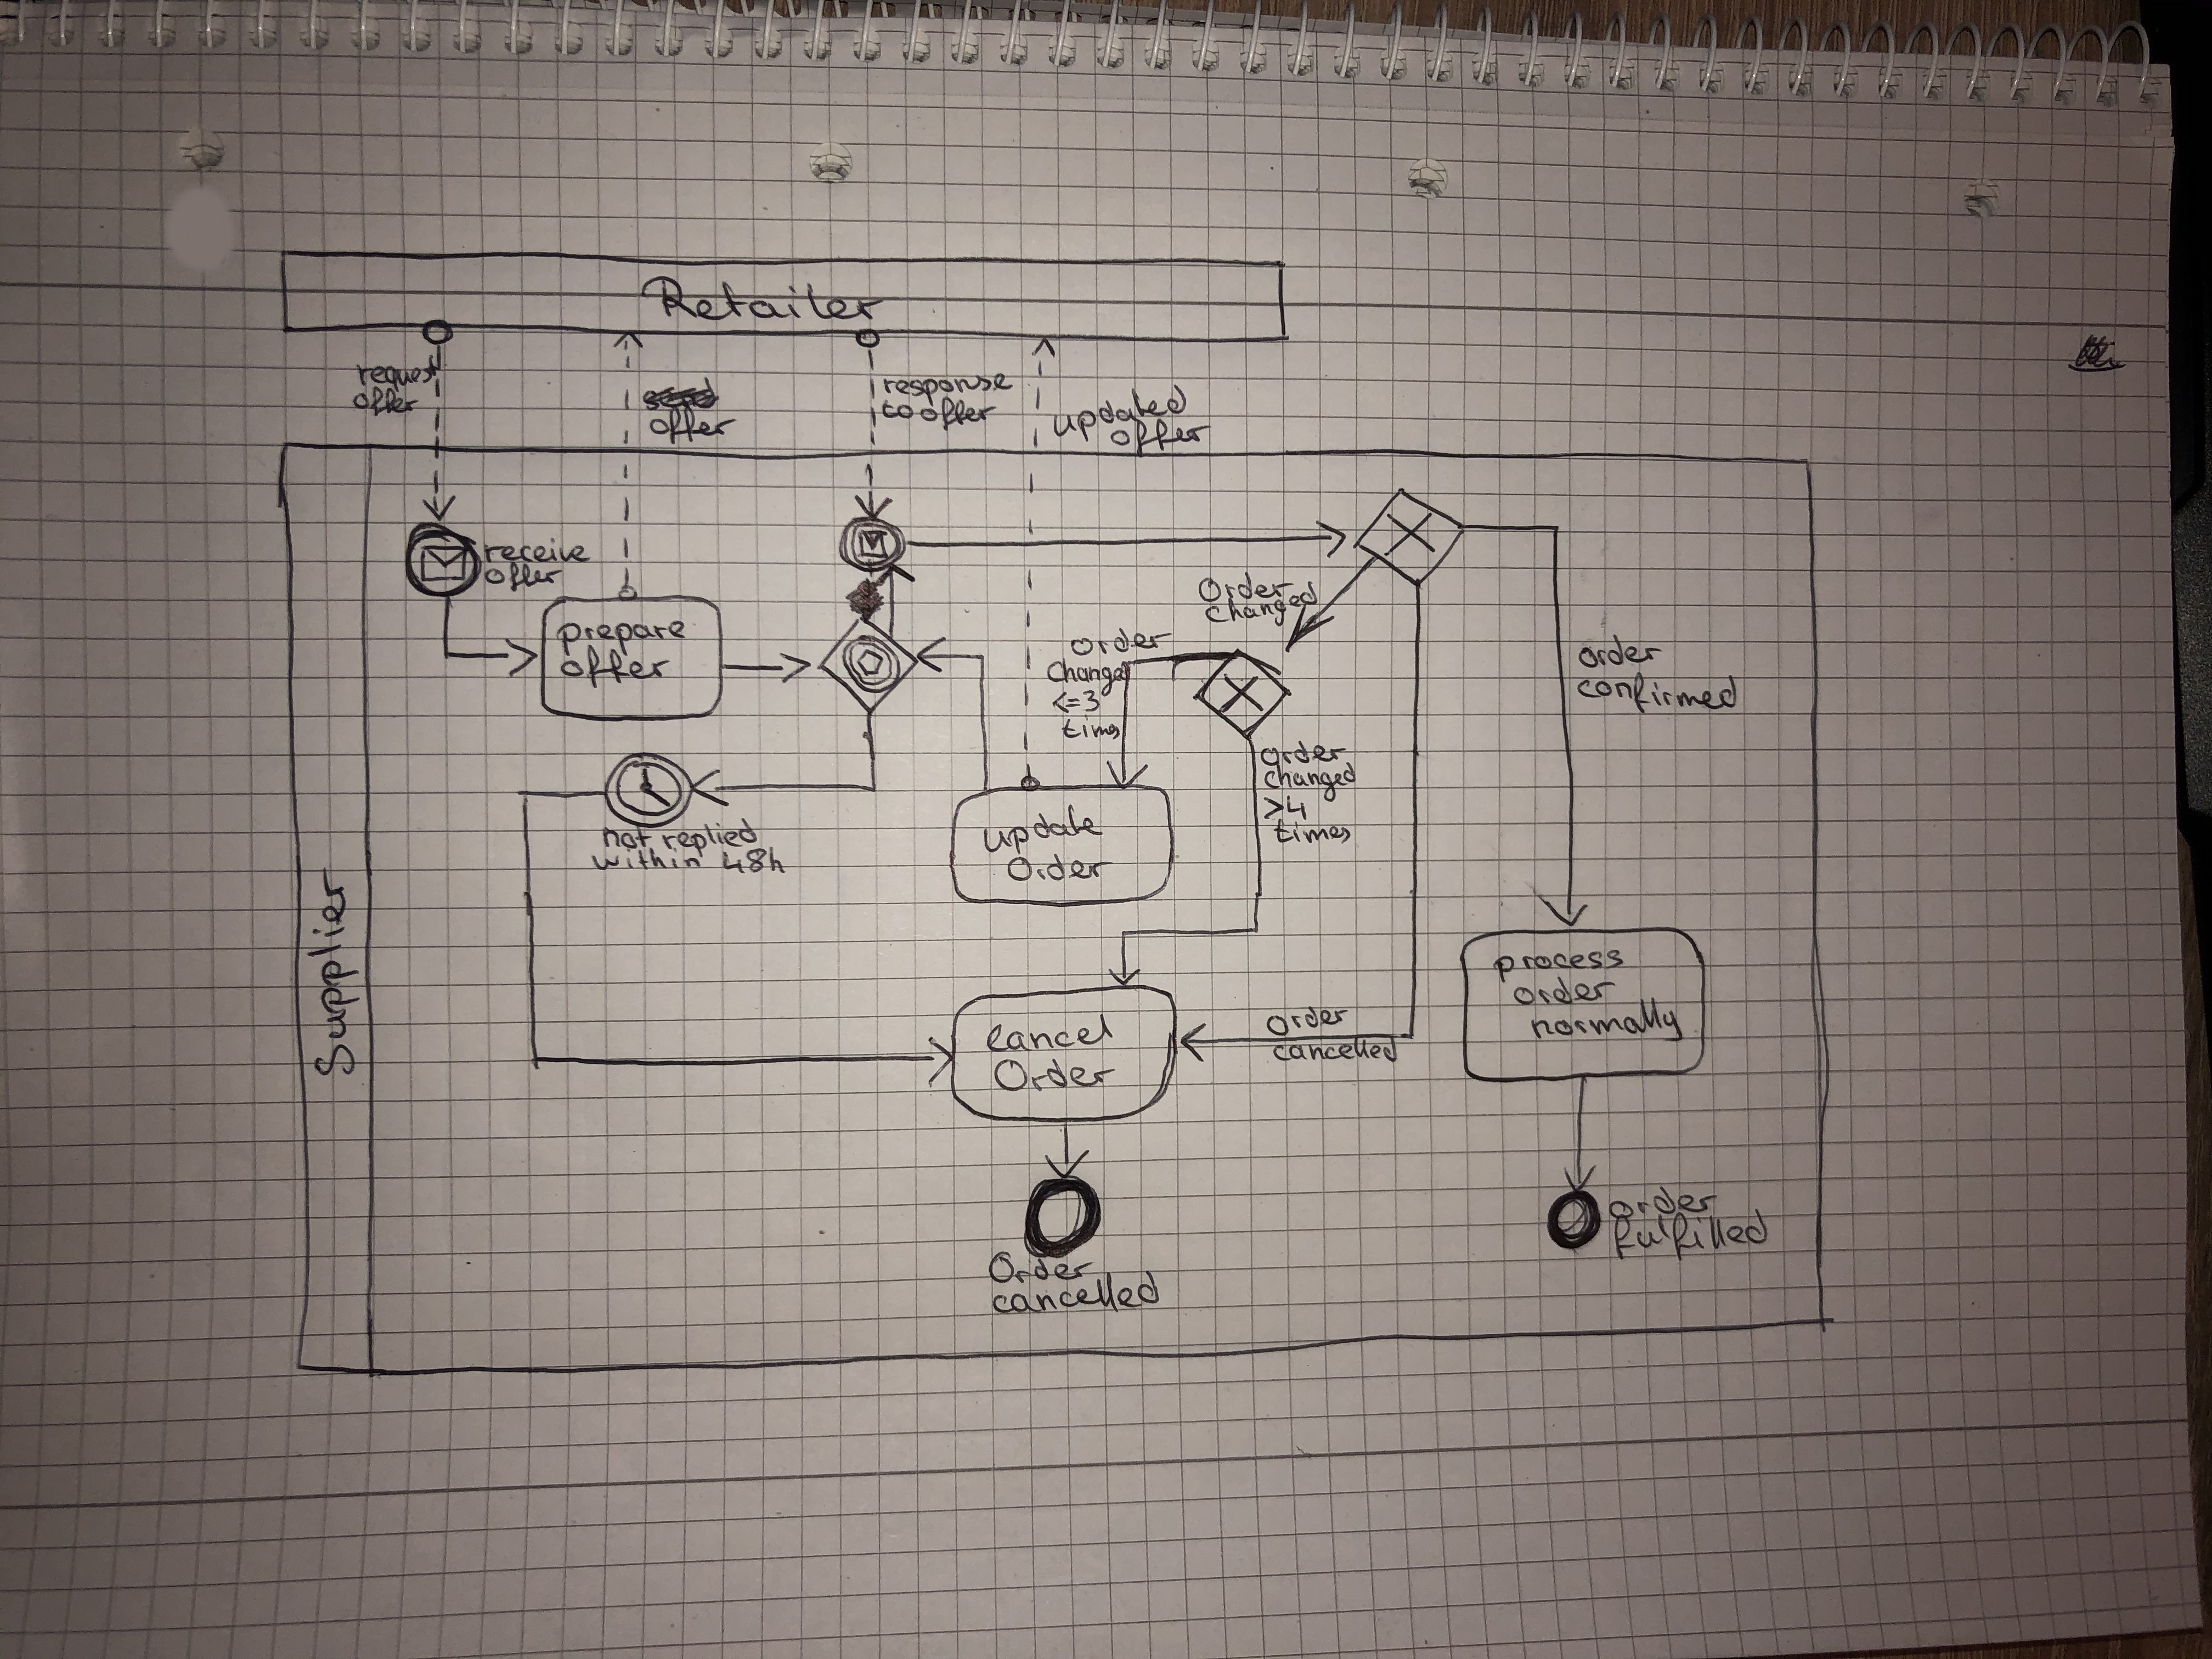 Retailer
request
offer
offer
response
to offer
updated
offer
receive
offer
prepare
offer
Order
changed
order
changed
<=3
times
order
confirmed
order
changed
>4
times
not replied
within 48h
update
Order
Supplier
process
order
normally
cancel
Order
order
cancelled
order
fulfilled
Order
cancelled